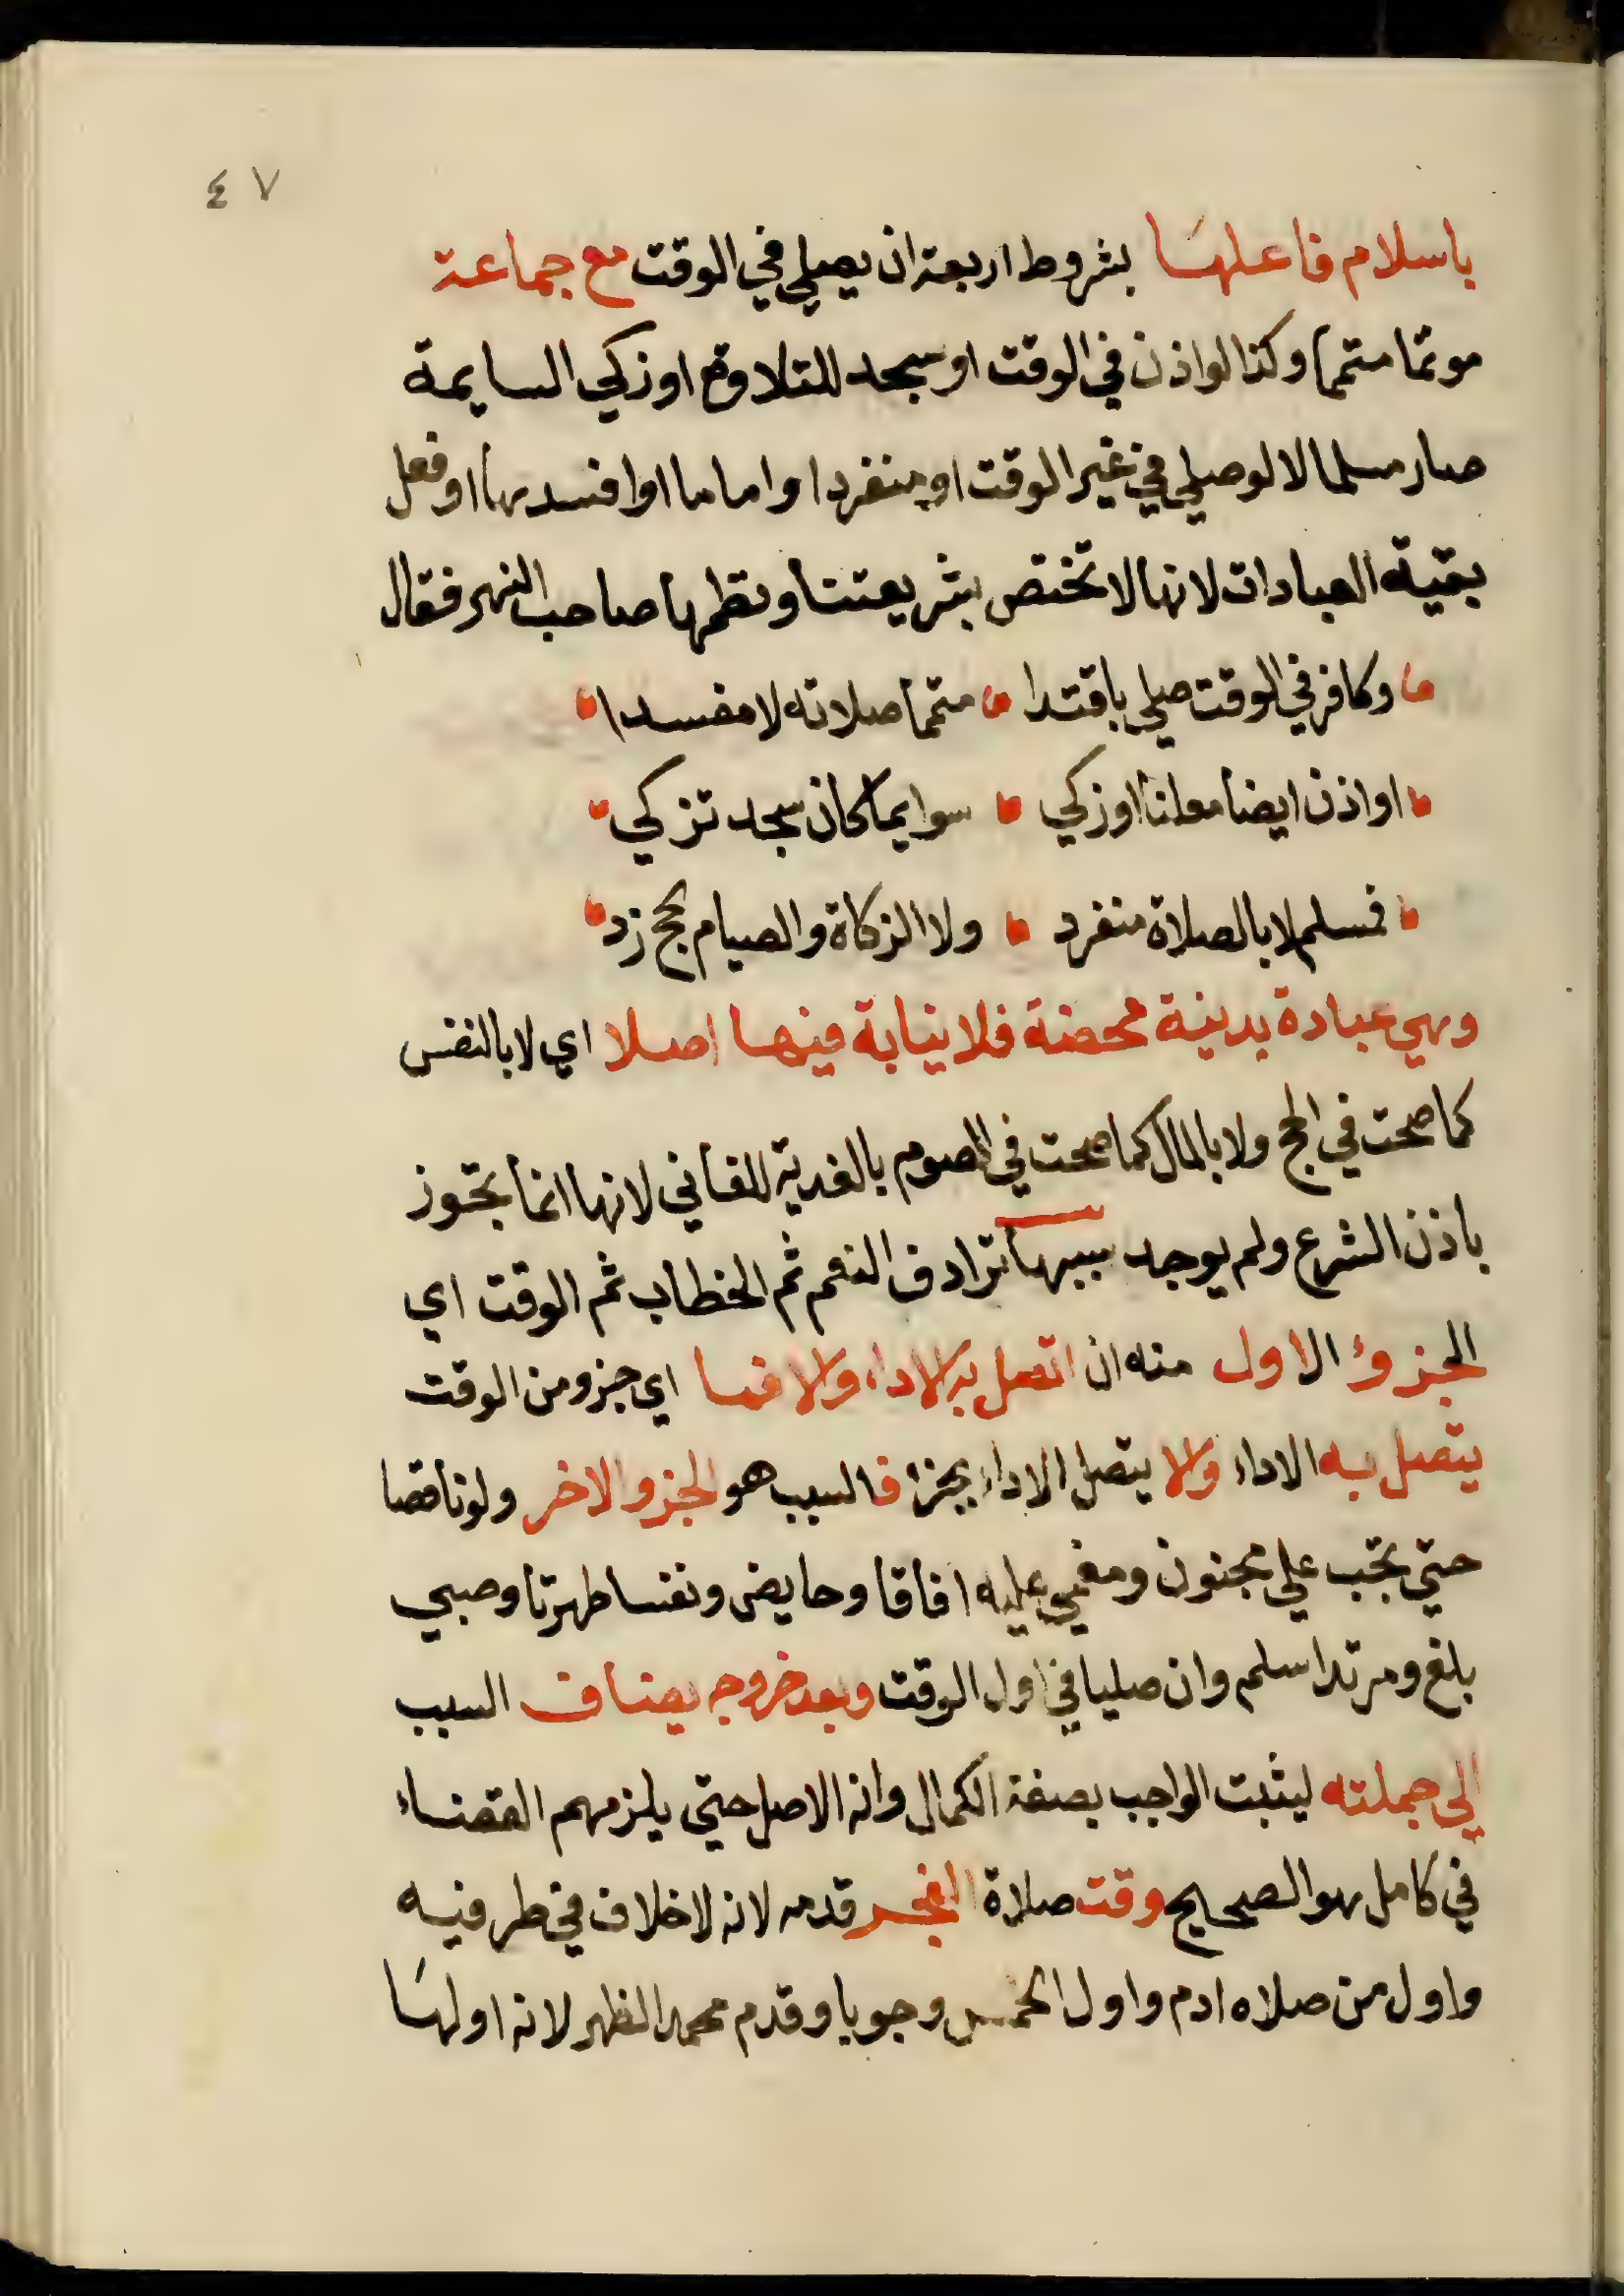 ٤٧
باسلام فاعلها بشروط اربعة ان يصلي في الوقت مع جماعة
موتما متمما وكذا لواذن في الوقت او سجد للتلاوة او زكي السايمة
صار مسلما لا لو صلي في غير الوقت او منفردا واماما او افسدها او فعل
بقية العبادات لانها لا تختص بشريعتنا ونظمها صاحب النهر فقال
وكافر في الوقت صلي باقتدا متمما صلاته لا مفسدا
او اذن ايضا معلنا او زكي سوايما كان سجد تزكي
فمسلم لا بالصلاة منفرد ولا الزكاة والصيام الحج زد
وهي عبادة بدنية محضة فلا نيابة فيها اصلا اي لا بالنفس
كما صحت في الحج ولا بالمال كما صحت في الصوم بالفدية للفاني لانها انما تجوز
باذن الشرع ولم يوجد سببها ترادف النعم ثم الخطاب ثم الوقت اي
الجزؤ الاول منه ان اتصل به الاداء والا فما اي جزو من الوقت
يتصل به الاداء والا يتصل الاداء بجزء فالسبب هو الجزو الاخر ولو ناقصا
حتي تجب علي مجنون ومغمي عليه افاقا وحايض ونفسا طهرتا وصبي
بلغ ومرتد اسلم وان صليا في اول الوقت وبعد خروجه يضاف السبب
الي جملته ليثبت الواجب بصفة الكمال وانه الاصل حتي يلزمهم القضاء
في كامل هو الصحيح وقت صلاة الفجر قدمه لانه لا خلاف في طرفيه
واول من صلاه ادم واول الخمس وجوبا وقدم محمد الظهر لانه اولها